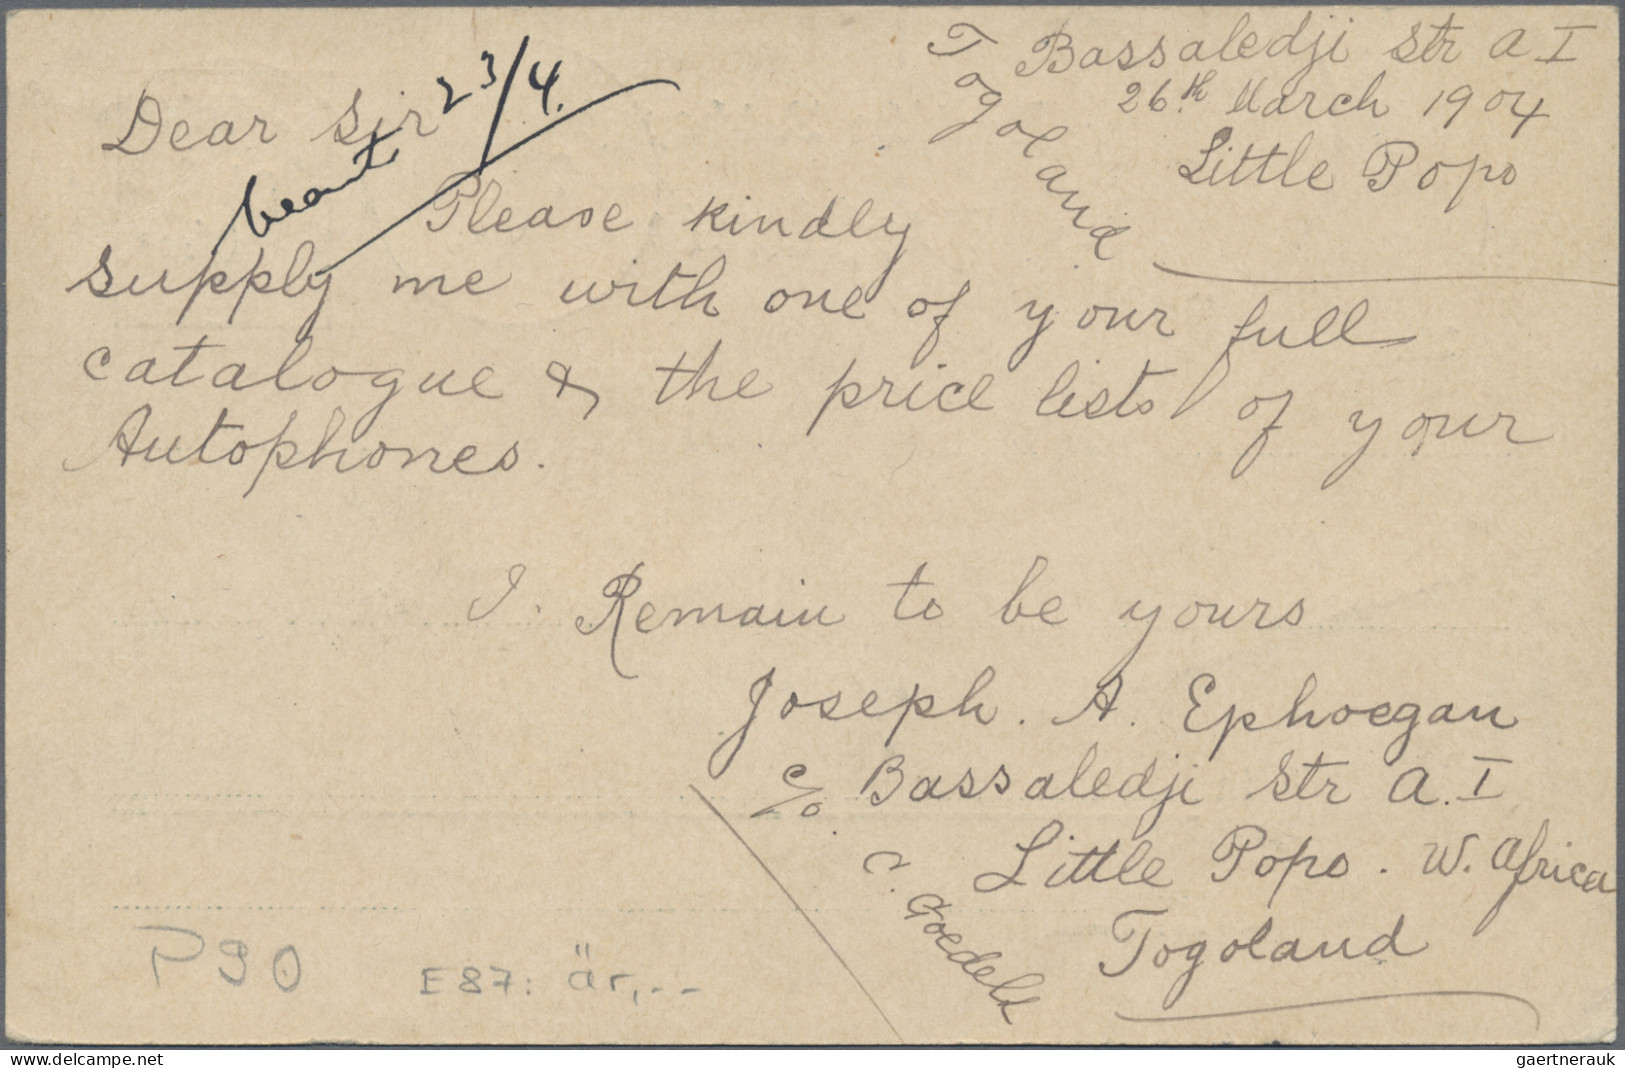 Bassaledji Str A I
26th March 1904
Little Popo
Togoland
Dear Sir
beant 23/4.
Please kindly
supply me with one of your full
catalogue & the price lists of your
Autophones.
I. Remain to be yours
Joseph. A. Ephoegan
c/o. Bassaledji Str A. I
C. Goedelt
Little Popo. W. Africa
Togoland
P 90
E87: är,--
gaertnerauk.com